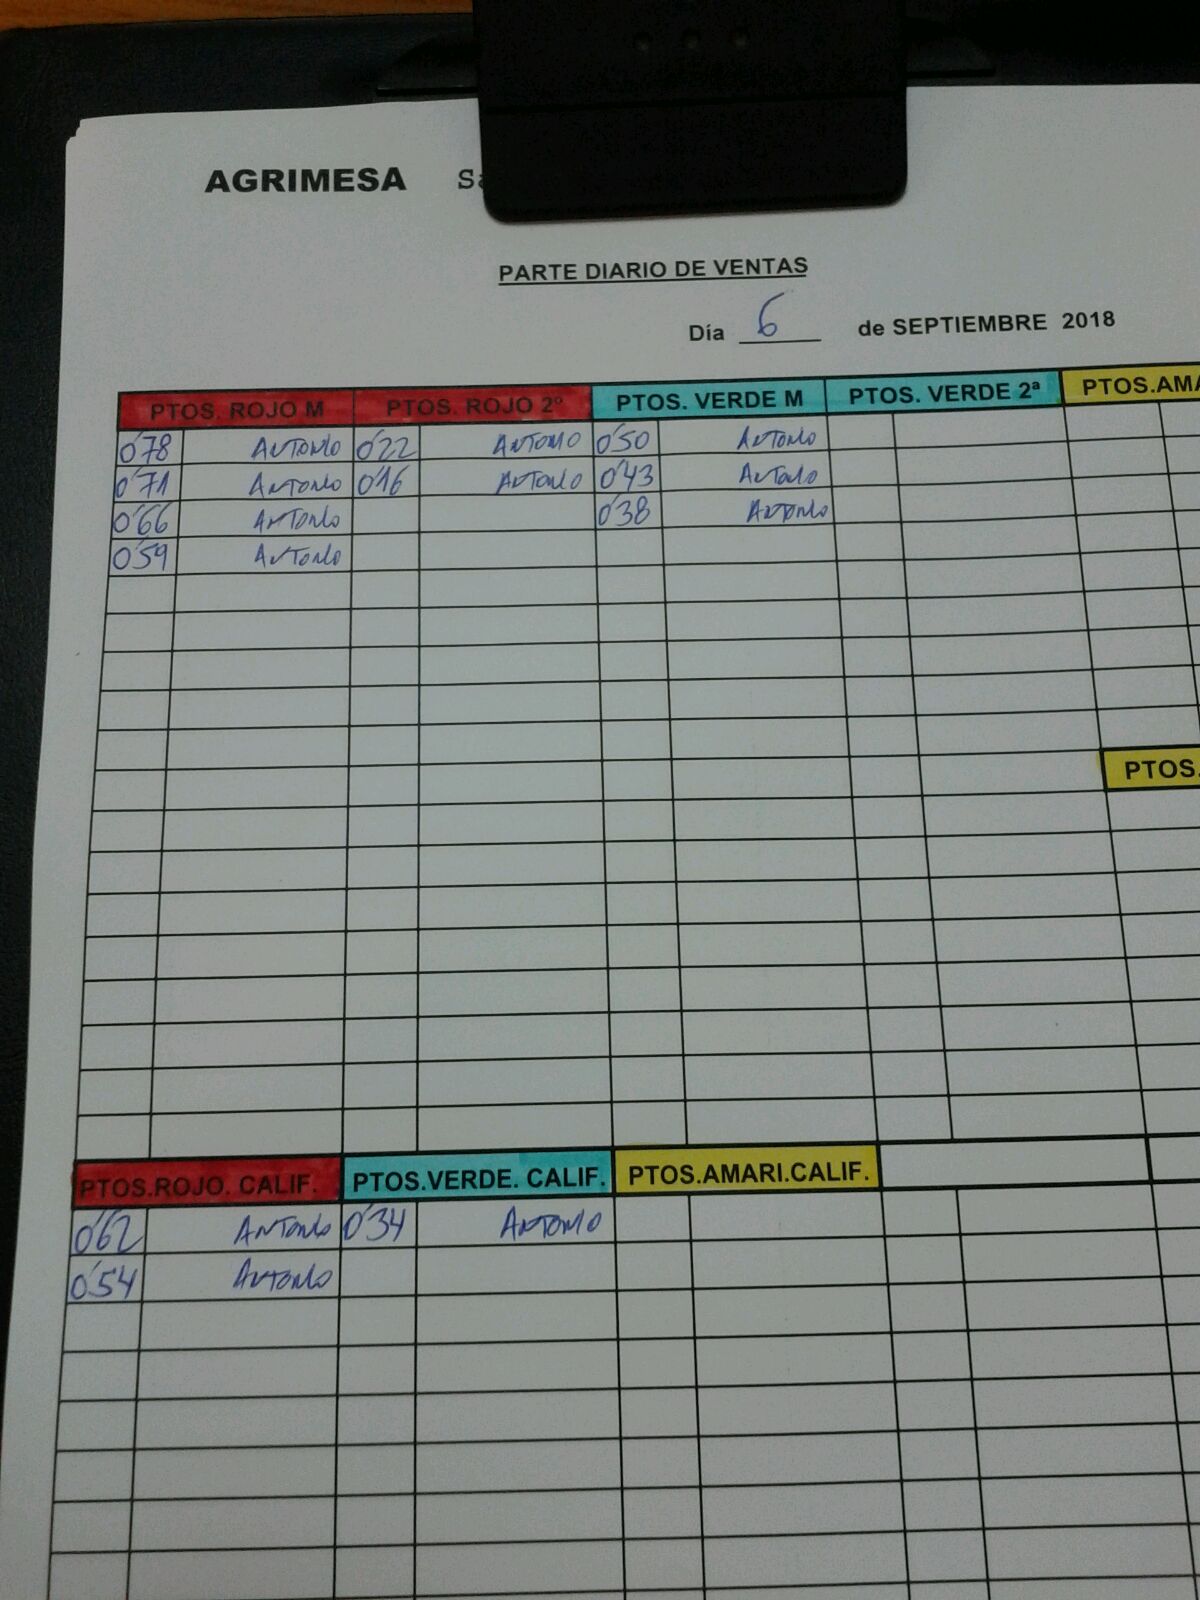 AGRIMESA Sa
PARTE DIARIO DE VENTAS
Día 6 de SEPTIEMBRE 2018
PTOS. ROJO M PTOS. ROJO 2º PTOS. VERDE M PTOS. VERDE 2ª PTOS.AMA
0'78 ANTONIO 0'22 ANTONIO 0'50 ANTONIO
0'71 ANTONIO 0'16 ANTONIO 0'43 ANTONIO
0'66 ANTONIO 0'38 ANTONIO
0'59 ANTONIO
PTOS.
PTOS.ROJO. CALIF. PTOS.VERDE. CALIF. PTOS.AMARI.CALIF.
0'62 ANTONIO 0'34 ANTONIO
0'54 ANTONIO